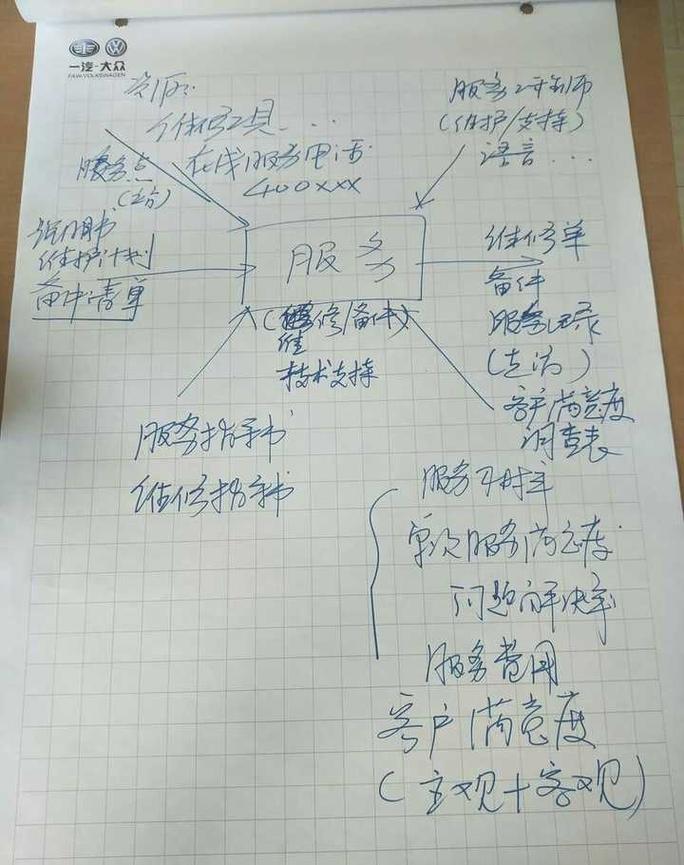 一汽-大众
FAW-VOLKSWAGEN
资源:
维修工具...
服务点
在线服务电话
400xxx
服务工程师
(维护/支持)
语言...
说明书
维护计划
备件清单
服务
(维修/备件)
维
技术支持
维修单
备件
服务记录
客户满意度
调查表
服务指导书
维修指导书
服务及时率
单次服务满意度
问题解决率
服务费用
客户满意度
(主观+客观)